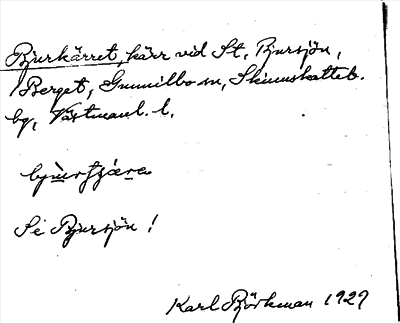 Bjurkärret, kärr vid St. Bjursjön,
Berget, Gunnilbo sn, Skinnskatteb.
bg, Västmanl. l.
Se Bjursjön!
Karl Björkman 1929